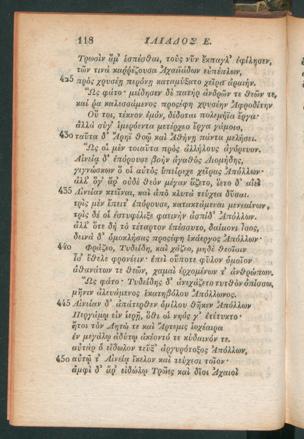 118 ΙΛΙΑΔΟΣ Ε.
Τρωσὶν ἅμ' ἑσπέσθαι, τοὺς νῦν ἔκπαγλ' ἐφίλησεν,
τῶν τινὰ καῤῥέζουσα Ἀχαιϊάδων εὐπέπλων,
425 πρὸς χρυσέῃ περόνῃ καταμύξατο χεῖρα ἀραιήν.
Ὣς φάτο· μείδησεν δὲ πατὴρ ἀνδρῶν τε θεῶν τε,
καί ῥα καλεσσάμενος προσέφη χρυσέην Ἀφροδίτην·
Οὔ τοι, τέκνον ἐμόν, δέδοται πολεμήϊα ἔργα·
ἀλλὰ σύγ' ἱμερόεντα μετέρχεο ἔργα γάμοιο,
430 ταῦτα δ' Ἄρηϊ θοῷ καὶ Ἀθήνῃ πάντα μελήσει.
Ὣς οἱ μὲν τοιαῦτα πρὸς ἀλλήλους ἀγόρευον.
Αἰνείᾳ δ' ἐπόρουσε βοὴν ἀγαθὸς Διομήδης,
γιγνώσκων ὅ οἱ αὐτὸς ὑπείρεχε χεῖρας Ἀπόλλων·
ἀλλ' ὅγ' ἄρ' οὐδὲ θεὸν μέγαν ἅζετο, ἵετο δ' αἰεὶ
435 Αἰνείαν κτεῖναι, καὶ ἀπὸ κλυτὰ τεύχεα δῦσαι.
τρὶς μὲν ἔπειτ' ἐπόρουσε, κατακτάμεναι μενεαίνων,
τρὶς δέ οἱ ἐστυφέλιξε φαεινὴν ἀσπίδ' Ἀπόλλων.
ἀλλ' ὅτε δὴ τὸ τέταρτον ἐπέσσυτο, δαίμονι ἶσος,
δεινὰ δ' ὁμοκλήσας προσέφη ἑκάεργος Ἀπόλλων·
440 Φράζεο, Τυδείδη, καὶ χάζεο, μηδὲ θεοῖσιν
Ἶσ' ἔθελε φρονέειν· ἐπεὶ οὔποτε φῦλον ὁμοῖον
ἀθανάτων τε θεῶν, χαμαὶ ἐρχομένων τ' ἀνθρώπων.
Ὣς φάτο· Τυδείδης δ' ἀνεχάζετο τυτθὸν ὀπίσσω,
μῆνιν ἀλευάμενος ἑκατηβόλου Ἀπόλλωνος.
445 Αἰνείαν δ' ἀπάτερθεν ὁμίλου θῆκεν Ἀπόλλων
Περγάμῳ εἰν ἱερῇ, ὅθι οἱ νηός γ' ἐτέτυκτο·
ἤτοι τὸν Λητώ τε καὶ Ἄρτεμις ἰοχέαιρα
ἐν μεγάλῳ ἀδύτῳ ἀκέοντό τε κύδαινόν τε.
αὐτὰρ ὁ εἴδωλον τεῦξ' ἀργυρότοξος Ἀπόλλων,
450 αὐτῷ τ' Αἰνείᾳ ἴκελον καὶ τεύχεσι τοῖον·
ἀμφὶ δ' ἄρ' εἰδώλῳ Τρῶες καὶ δῖοι Ἀχαιοὶ